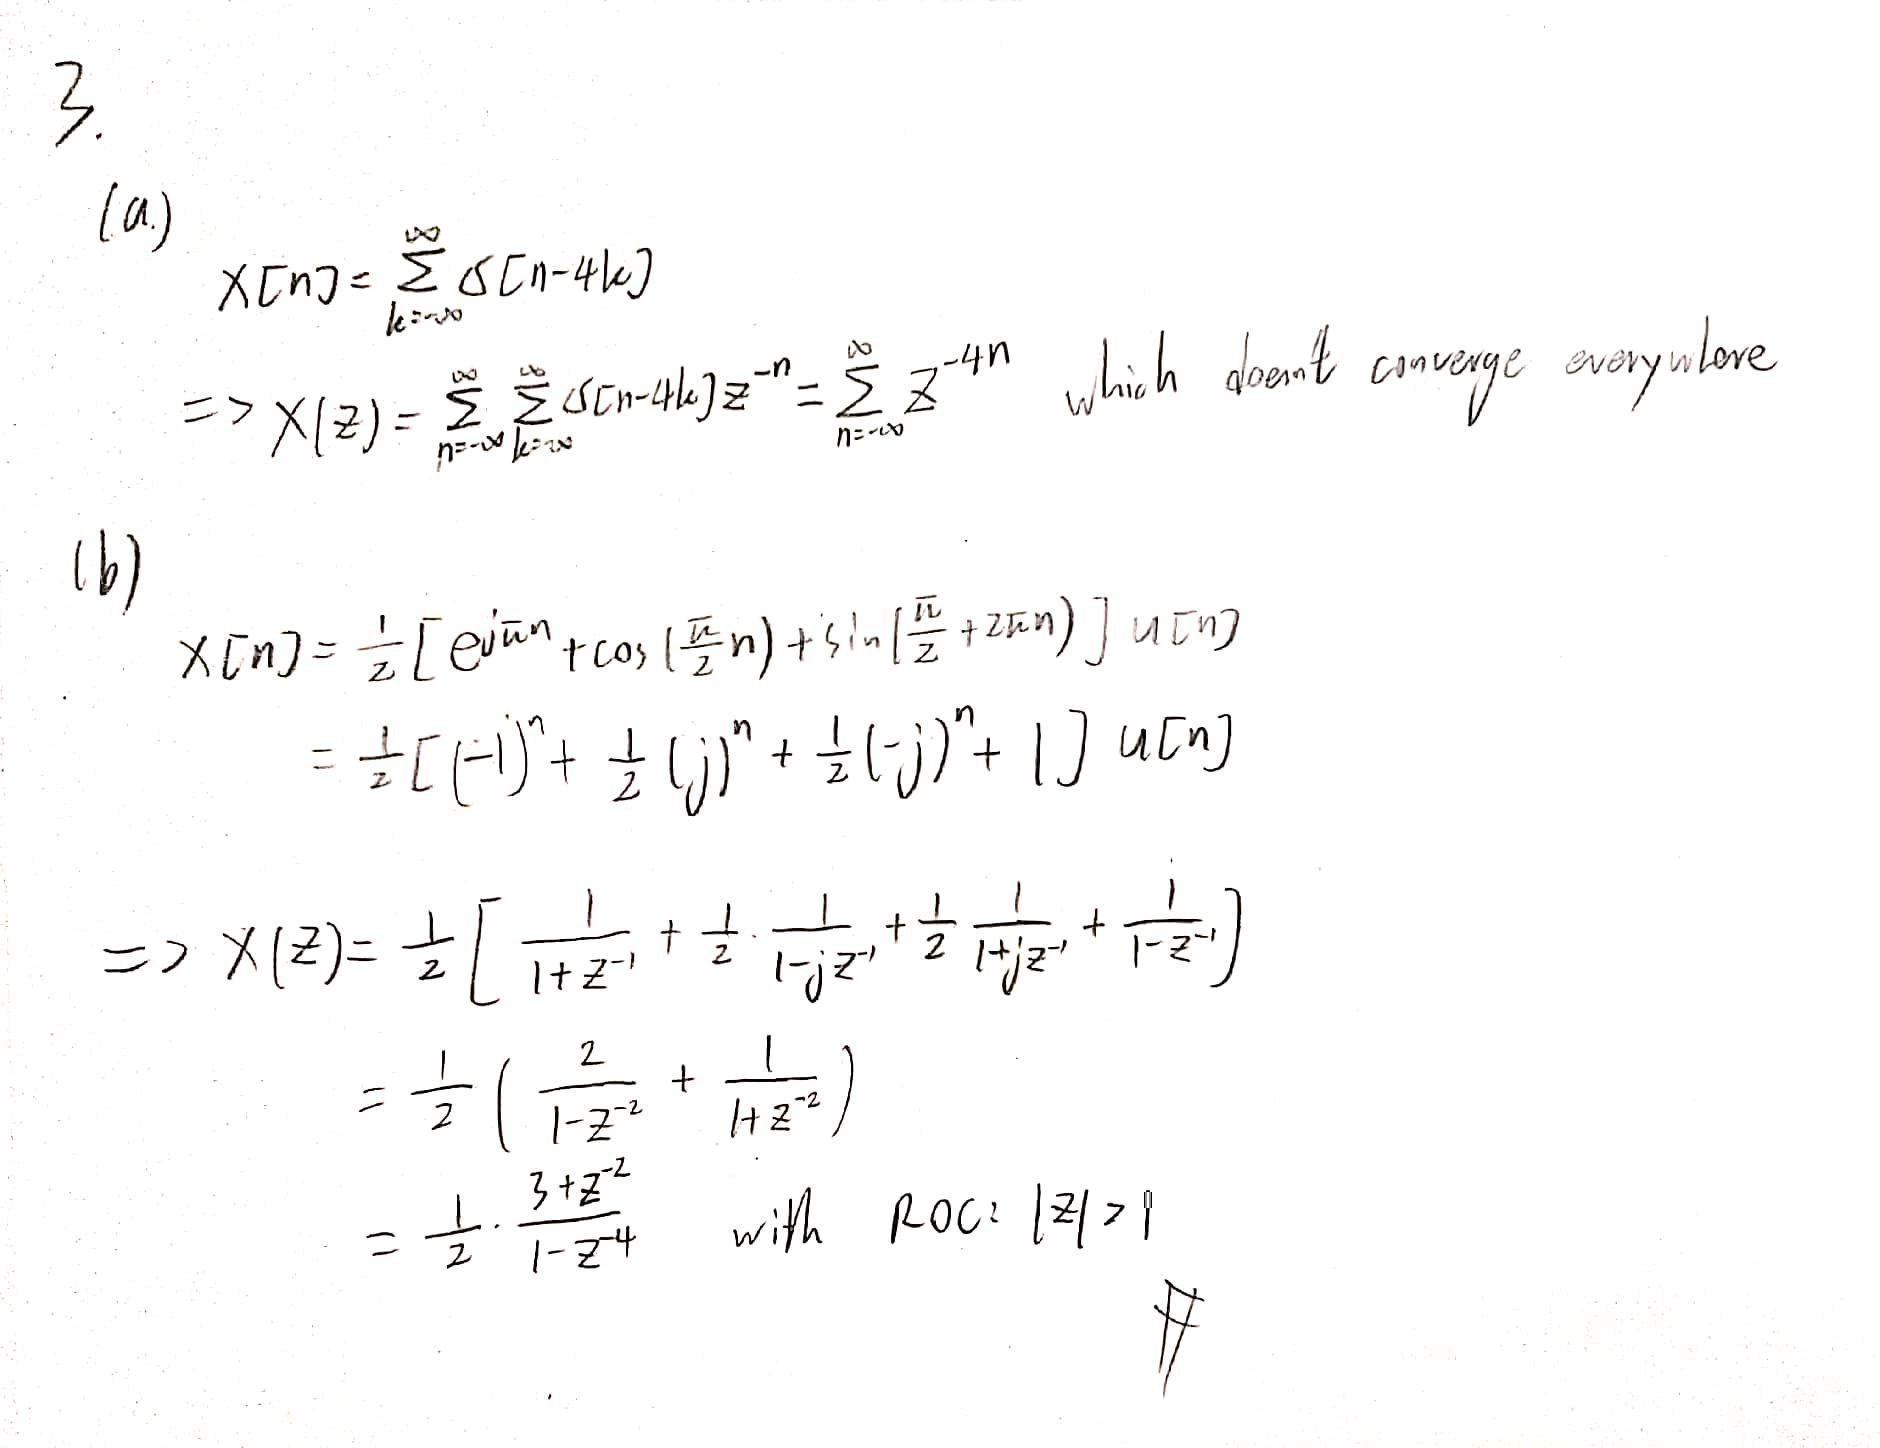 3.
(a.)
x[n] = \sum_{k=-∞}^{∞} δ[n-4k]
=> X(z) = \sum_{n=-∞}^{∞} \sum_{k=-∞}^{∞} δ[n-4k] z^{-n} = \sum_{n=-∞}^{∞} z^{-4n} which doesn't converge everywhere
(b)
x[n] = \frac{1}{2} [e^{jπn} + cos(\frac{π}{2}n) + sin(\frac{π}{2} + 2πn)] u[n]
= \frac{1}{2} [(-1)^n + \frac{1}{2}(j)^n + \frac{1}{2}(-j)^n + 1] u[n]
=> X(z) = \frac{1}{2} [\frac{1}{1+z^{-1}} + \frac{1}{2} · \frac{1}{1-jz^{-1}} + \frac{1}{2} \frac{1}{1+jz^{-1}} + \frac{1}{1-z^{-1}}]
= \frac{1}{2} (\frac{2}{1-z^{-2}} + \frac{1}{1+z^{-2}})
= \frac{1}{2} · \frac{3+z^{-2}}{1-z^{-4}} with ROC: |z|>1